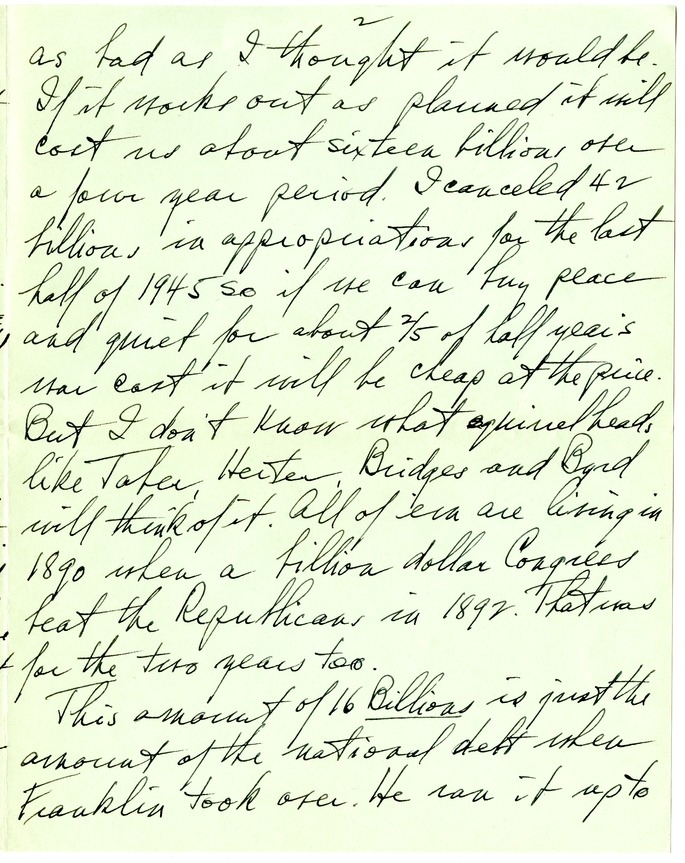 2
as bad as I thought it would be.
If it works out as planned it will
cost us about sixteen billions over
a four year period. I canceled 42
billions in appropriations for the last
half of 1945 so if we can buy peace
and quiet for about 2/5 of half year's
war cost it will be cheap at the price.
But I don't know what squirrel heads
like Taber, Herter, Bridges and Byrd
will think of it. All of 'em are living in
1890 when a billion dollar Congress
beat the Republicans in 1892. That was
for the two years too.
This amount of 16 Billions is just the
amount of the national debt when
Franklin took over. He ran it up to